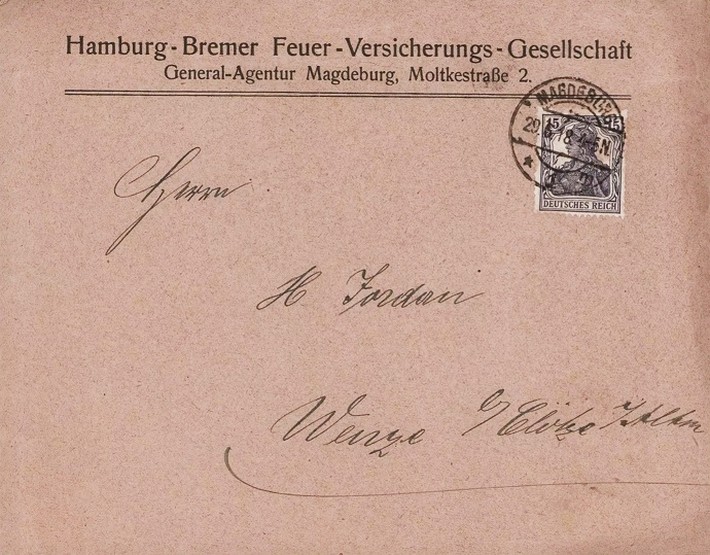 Hamburg-Bremer Feuer-Versicherungs-Gesellschaft
General-Agentur Magdeburg, Moltkestraße 2.
MAGDEBURG
15 15
DEUTSCHES REICH
Herrn
H Jordan
Wenze b/Clötze